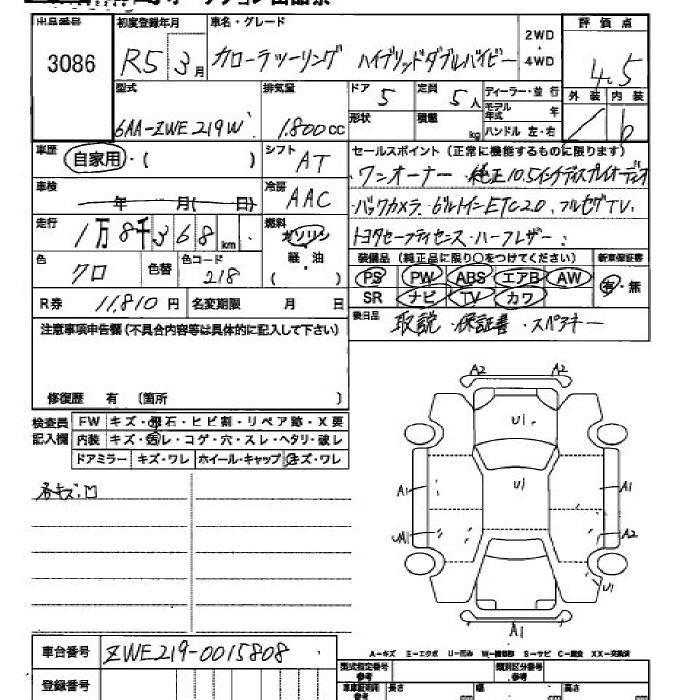 出品番号 初度登録年月 車名・グレード 2WD・4WD 評価点
3086 R5 3月 カローラツーリング ハイブリッドダブルバイビー 4.5
型式 排気量 ドア 5 定員 5人 ディーラー・並行 外装 内装
6AA-ZWE219W 1.800cc 形状 積載 kg モデル年式 年 b
ハンドル 左・右
車歴 自家用・( ) シフト AT セールスポイント(正常に機能するものに限ります)
ワンオーナー・純正10.5インチディスプレイオーディオ
車検 年 月( 日) 冷房 AAC バックカメラ・ビルトインETC2.0、フルセグTV、
走行 1万8千368km 燃料 ガソリン 軽・油 ( ) トヨタセーフティセンス・ハーフレザー
色 クロ 色替 色コード 218 装備品(純正品に限り○をつけてください) 新車保証書
PS PW ABS エアB AW 有・無
SR ナビ TV カワ
R券 11,810円 名変期限 月 日 後日品 取説・保証書・スペアキー
注意事項申告欄(不具合内容等は具体的に記入して下さい)
修復歴 有 〔箇所 〕
検査員記入欄 FW キズ・飛石・ヒビ割・リペア跡・X要
内装 キズ・汚レ・コゲ・穴・スレ・ヘタリ・破レ
ドアミラー キズ・ワレ ホイール・キャップ キズ・ワレ
各キズ・凹
A2 A2
U1
A1 U1 A1
UA1 A2
U1
A1
A-キズ E-エクボ U-凹み W-補修跡 S-サビ C-腐食 XX-交換済
車台番号 ZWE219-0015808
登録番号
型式指定番号参考 類別区分番号参考
車庫証明用参考 長さ cm 幅 cm 高さ cm